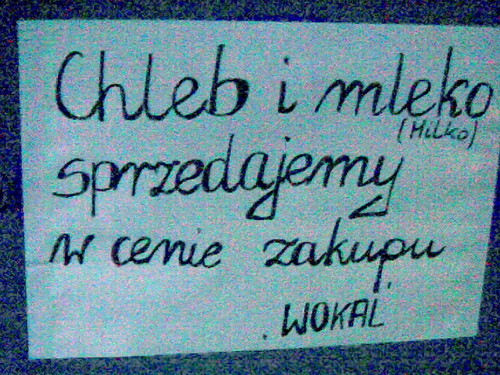 Chleb i mleko
(Milko)
sprzedajemy
w cenie zakupu
"WOKAL"